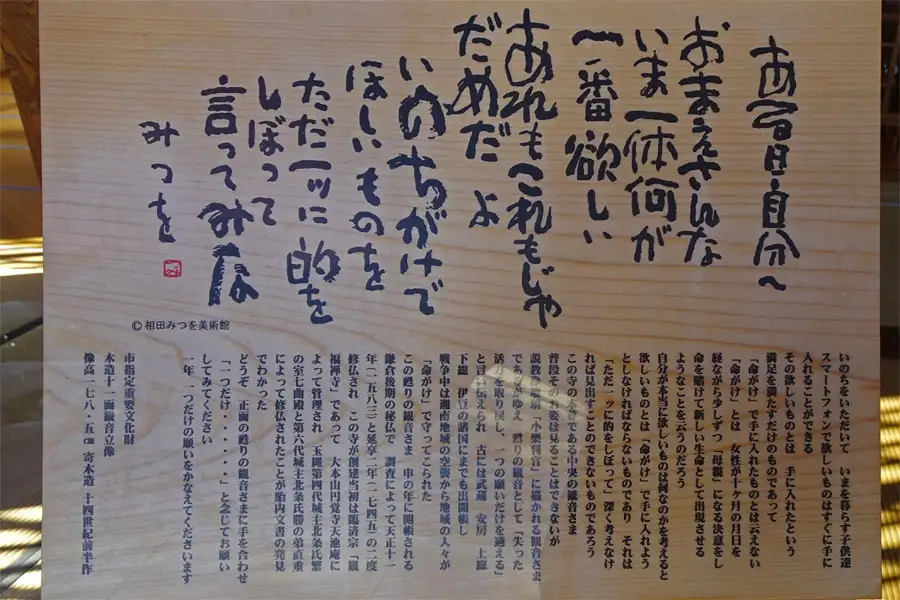 ある日自分へ
おまえさんな
いま一体何が
一番欲しい
あれもこれもじゃ
だめだよ
いのちがけで
ほしいものを
ただ一ツに的を
しぼって
言ってみな
みつを
©相田みつを美術館
いのちをいただいて いまを暮らす子供達
スマートフォンで欲しいものはすぐに手に
入れることができる
その欲しいものとは 手に入れたという
満足を満たすだけのものであって
「命がけ」で手に入れたものとは云えない
「命がけ」とは 女性が十ヶ月の月日を
経ながら少しずつ「母親」になる決意をし
命を賭けて新しい生命として出現させる
ようなことを云うのだろう
自分が本当に欲しいものは何なのかを考えると
欲しいものとは「命がけ」で手に入れよう
としなければならないものであり それは
「ただ一ッに的をしぼって」深く考えなけ
れば見出すことのできないものであろう
この寺の本尊である中央の観音さま
普段そのお姿は見ることはできないが
説教節 「小栗判官」に描かれる観音さま
であるが 甦りの観音として「失った
活力を取り戻し、一つの願いだけを適える」
と言い伝えられ 古には武蔵 安房 上総
下総 伊豆の諸国にまでも出開帳し
戦争中は湘南地域の空襲から地域の人々が
「命がけ」で守ってこられた
この甦りの観音さま 申の年に開帳される
鎌倉後期の秘仏で 調査によって天正十一
年(一五八三)と延享二年(一七四五)の二度
修仏され この寺が創建当初は臨済宗「観
福禅寺」であって 大本山円覚寺天池庵に
よって管理され 玉縄第四代城主北条氏繁
の室七曲殿と第六代城主北条氏勝の弟直重
によって修仏されたことが胎内文書の発見
でわかった
どうぞ 正面の甦りの観音さまに手を合わせ
「一つだけ・・・・・」と念じてお願い
してみてください
一年 一つだけの願いをかなえてくださいます
市指定重要文化財
木造十一面観音立像
像高一七八・五㎝ 寄木造 十四世紀前半作